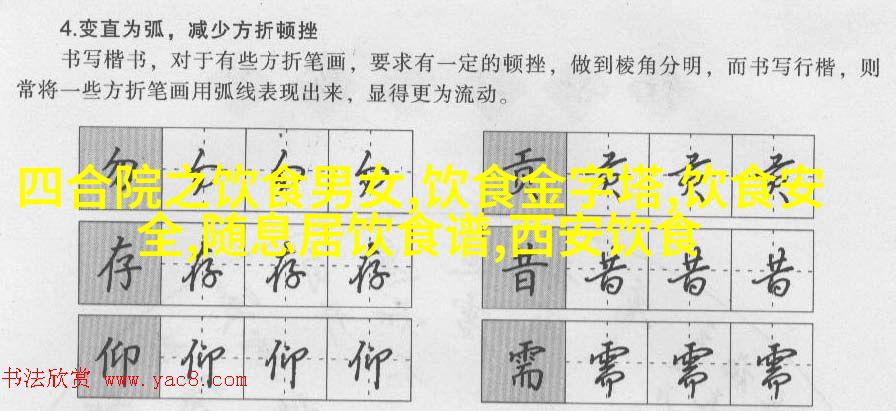 4.变直为弧，减少方折顿挫
书写楷书，对于有些方折笔画，要求有一定的顿挫，做到棱角分明，而书写行楷，则
常将一些方折笔画用弧线表现出来，显得更为流动。
四合院之饮食男女,饮食金字塔,饮食安
全,随息居饮食谱,西安饮食
存 存 存 存
昔 昔 昔 昔
仰 仰 仰 仰
需 需 需 需
书法欣赏 www.yac8.com